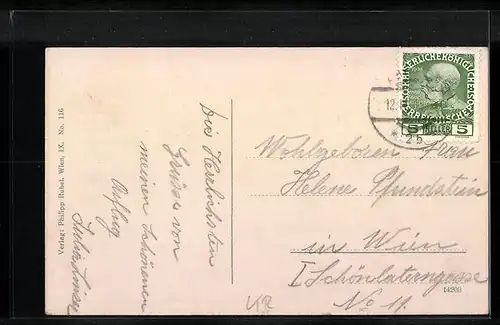 Verlag: Philipp Rubel, Wien, IX. No. 116
Die Herzlichsten
Grüsse von
meinen Schönenen
Ausflug
KAISERLICHE KÖNIGLICHE
ÖSTERREICHISCHE POST
5 HELLER 5
12.
* 2b
Wohlgeboren Frau
Helene Pfundstein
in Wien
I Schönlaterngasse
No 11.
14200